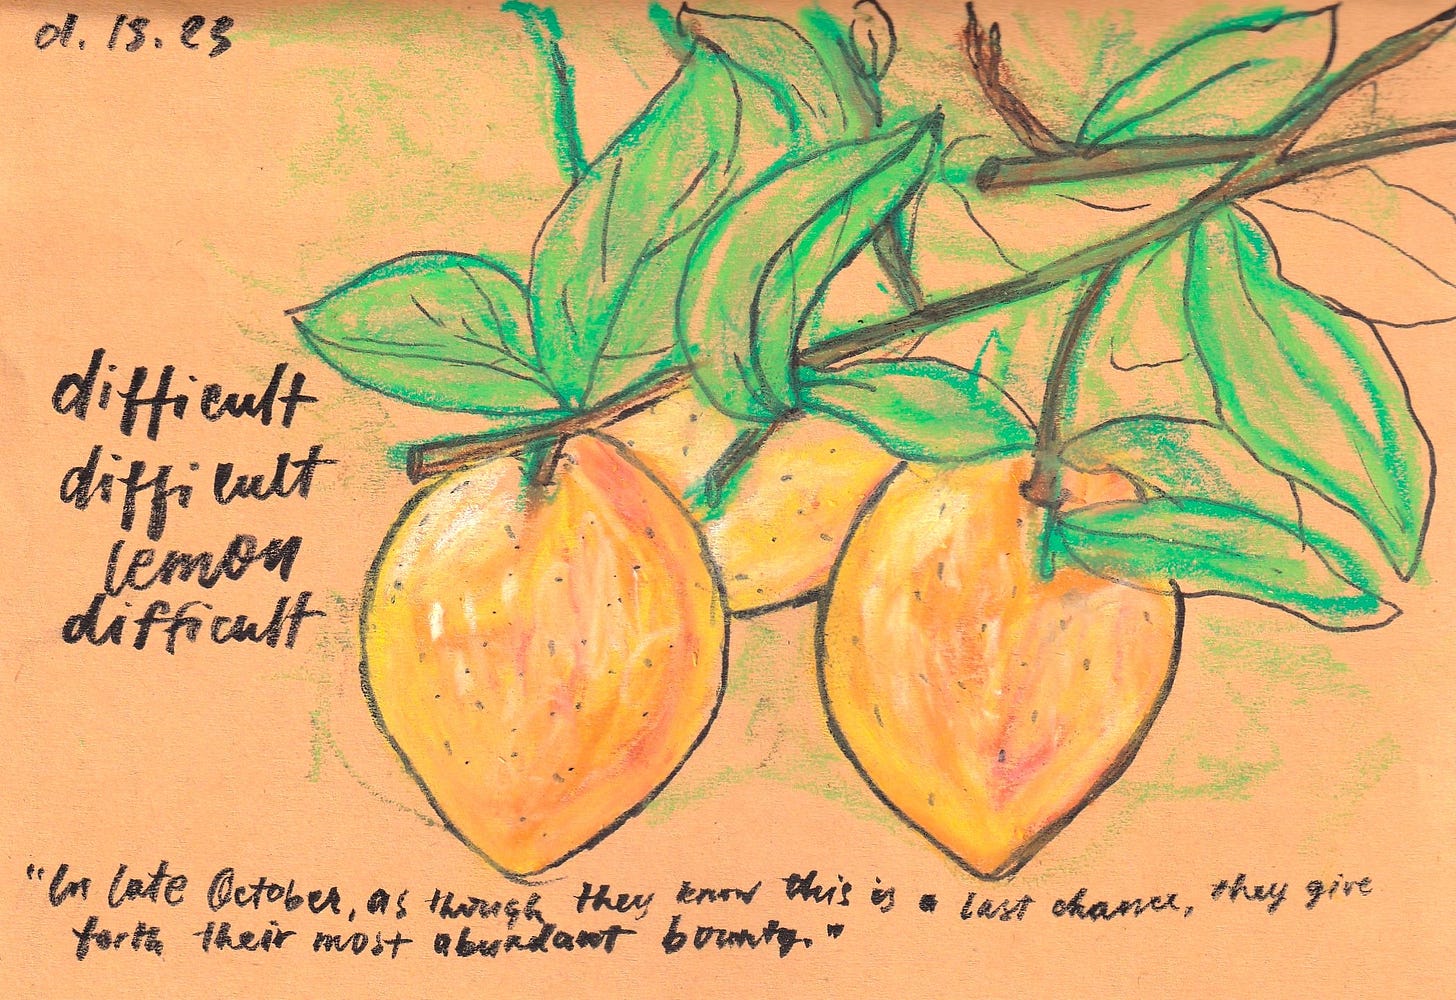 d. 18. 23
difficult
difficult
lemon
difficult
"In late October, as though they know this is a last chance, they give
forth their most abundant bounty."